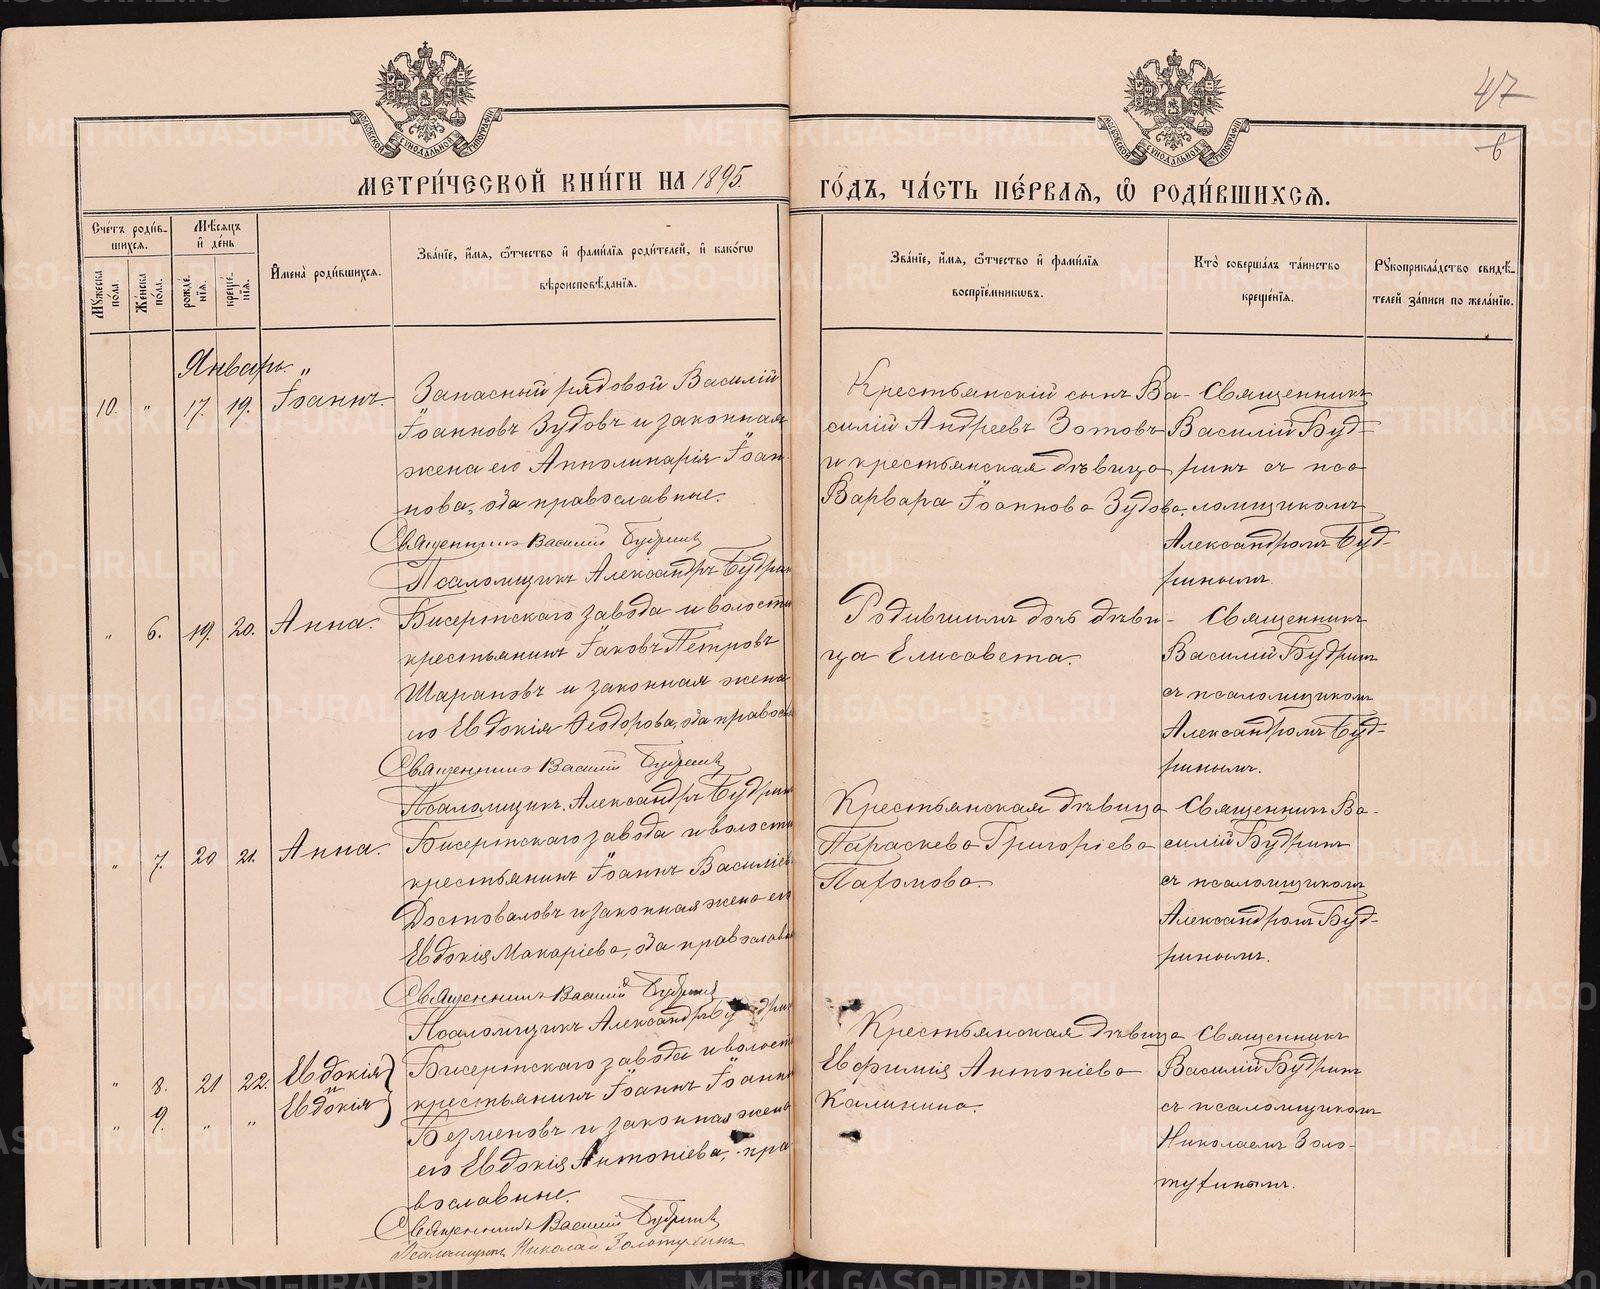 47
6
МЕТРИ́ЧЕСКОЙ КНИ́ГИ НА 1895.
ГО́ДЪ, ЧА́СТЬ ПЕ́РВАЯ, Ѽ РОДИ́ВШИХСЯ.
Сче́тъ роди́вшихся.
Му́жеска по́ла.
Же́нска по́ла.
Мѣ́сяцъ и́ де́нь
рожде́нїя.
креще́нїя.
И҆мена̀ роди́вшихся.
Зва́нїе, и҆́мя, ѻ҆́тчество и҆ фами́лїя роди́телей, и҆ како́гѡ
вѣроисповѣ́данїя.
Зва́нїе, и҆́мя, ѻ҆́тчество и҆ фами́лїя
воспрїе́мниковъ.
Кто̀ соверша́лъ та́инство
креще́нїя.
Рꙋкоприкла́дство свидѣ́телей за́писи по жела́нїю.
Январь.
10. „ 17. 19. Іоаннъ.
Запасный рядовой Василій
Іоанновъ Зудовъ и законная
жена его Апполинарія Іоан-
нова, оба православные.
Священникъ Василій Будринъ
Псаломщикъ Александръ Будрин
Крестьянскій сынъ Ва-
силій Андреевъ Зотовъ
и крестьянская дѣвица
Варвара Іоаннова Зудова.
Священникъ
Василій Буд-
ринъ съ пса-
ломщикомъ
Александромъ Буд-
ринымъ.
„ 6. 19. 20. Анна.
Бисертскаго завода и волости
крестьянинъ Іаковъ Петровъ
Шарановъ и законная жена
его Евдокія Ѳеодорова, оба правос
Священникъ Василій Будринъ
Псаломщикъ Александръ Будрин
Родившимъ дочь дѣви-
ца Елисавета.
Священникъ
Василій Будринъ
съ псаломщикомъ
Александромъ Буд-
ринымъ.
„ 7. 20 21. Анна.
Бисертскаго завода и волости
крестьянинъ Іоаннъ Василіев
Достоваловъ и законная жена его
Евдокія Макаріева, оба православн
Священникъ Василій Будринъ
Псаломщикъ Александръ Будрин
Крестьянская дѣвица
Параскева Григоріева
Пахомова.
Священникъ Ва-
силій Будринъ
съ псаломщикомъ
Александромъ Буд-
ринымъ.
„ 8. 21 22. Евдокія
и
„ 9. „ „ Евдокія
Бисертскаго завода и волост
крестьянинъ Іоаннъ Іоанн
Безменовъ и законная жена
его Евдокія Антоніева, пра
вославные.
Священникъ Василій Будринъ
Псаломщикъ Николай Золотухинъ
Крестьянская дѣвица
Евфимія Антоніева
Калинина.
Священникъ
Василій Будринъ
съ псаломщикомъ
Николаемъ Золо-
тухинымъ.
METRIKI.GASO-URAL.RU